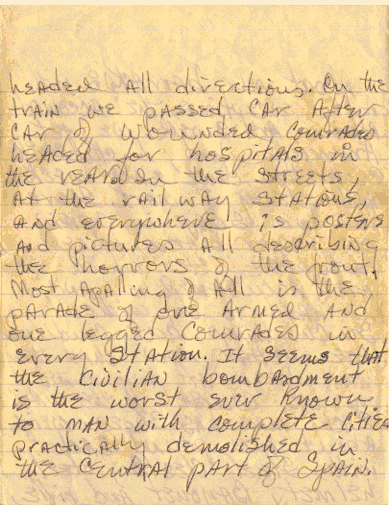 headed all directions. On the
train we passed car after
car of wounded comrades
headed for hospitals in
the rear. In the streets,
at the railway stations,
and everywhere is posters
and pictures all describing
the horrors of the front.
Most apalling of all is the
parade of one armed and
one legged comrades in
every station. It seems that
the civilian bombardment
is the worst ever known
to man with complete cities
practically demolished in
the central part of Spain.